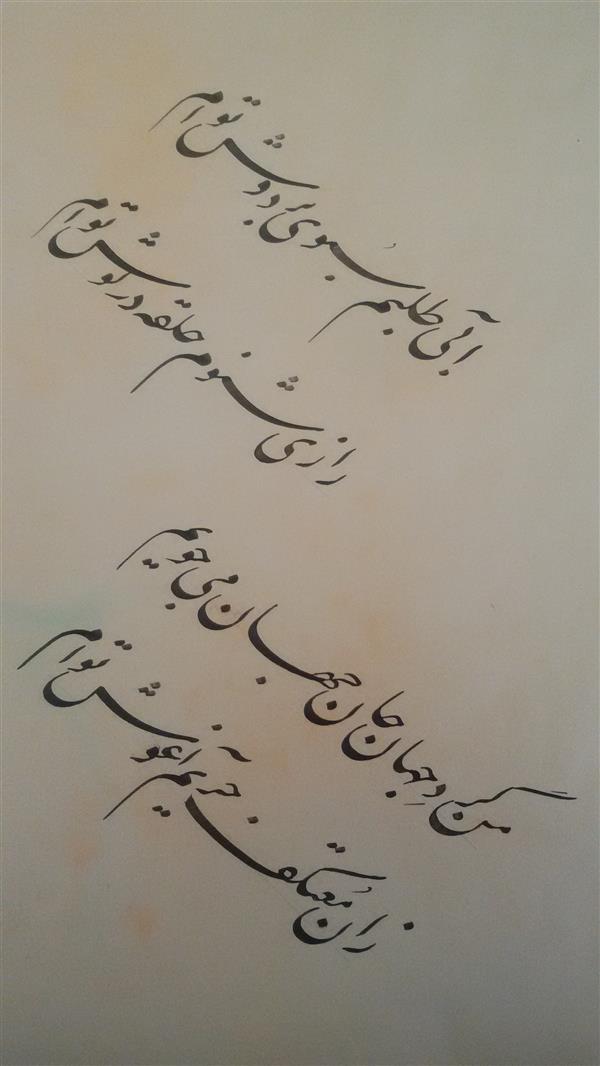 آبی طلبم سبوی بر دوش توام
رازی شنوم حلقه در گوش توام
من گردِ جهان جان جهان می جویم
زان مُعتکف حریم آغوش توام